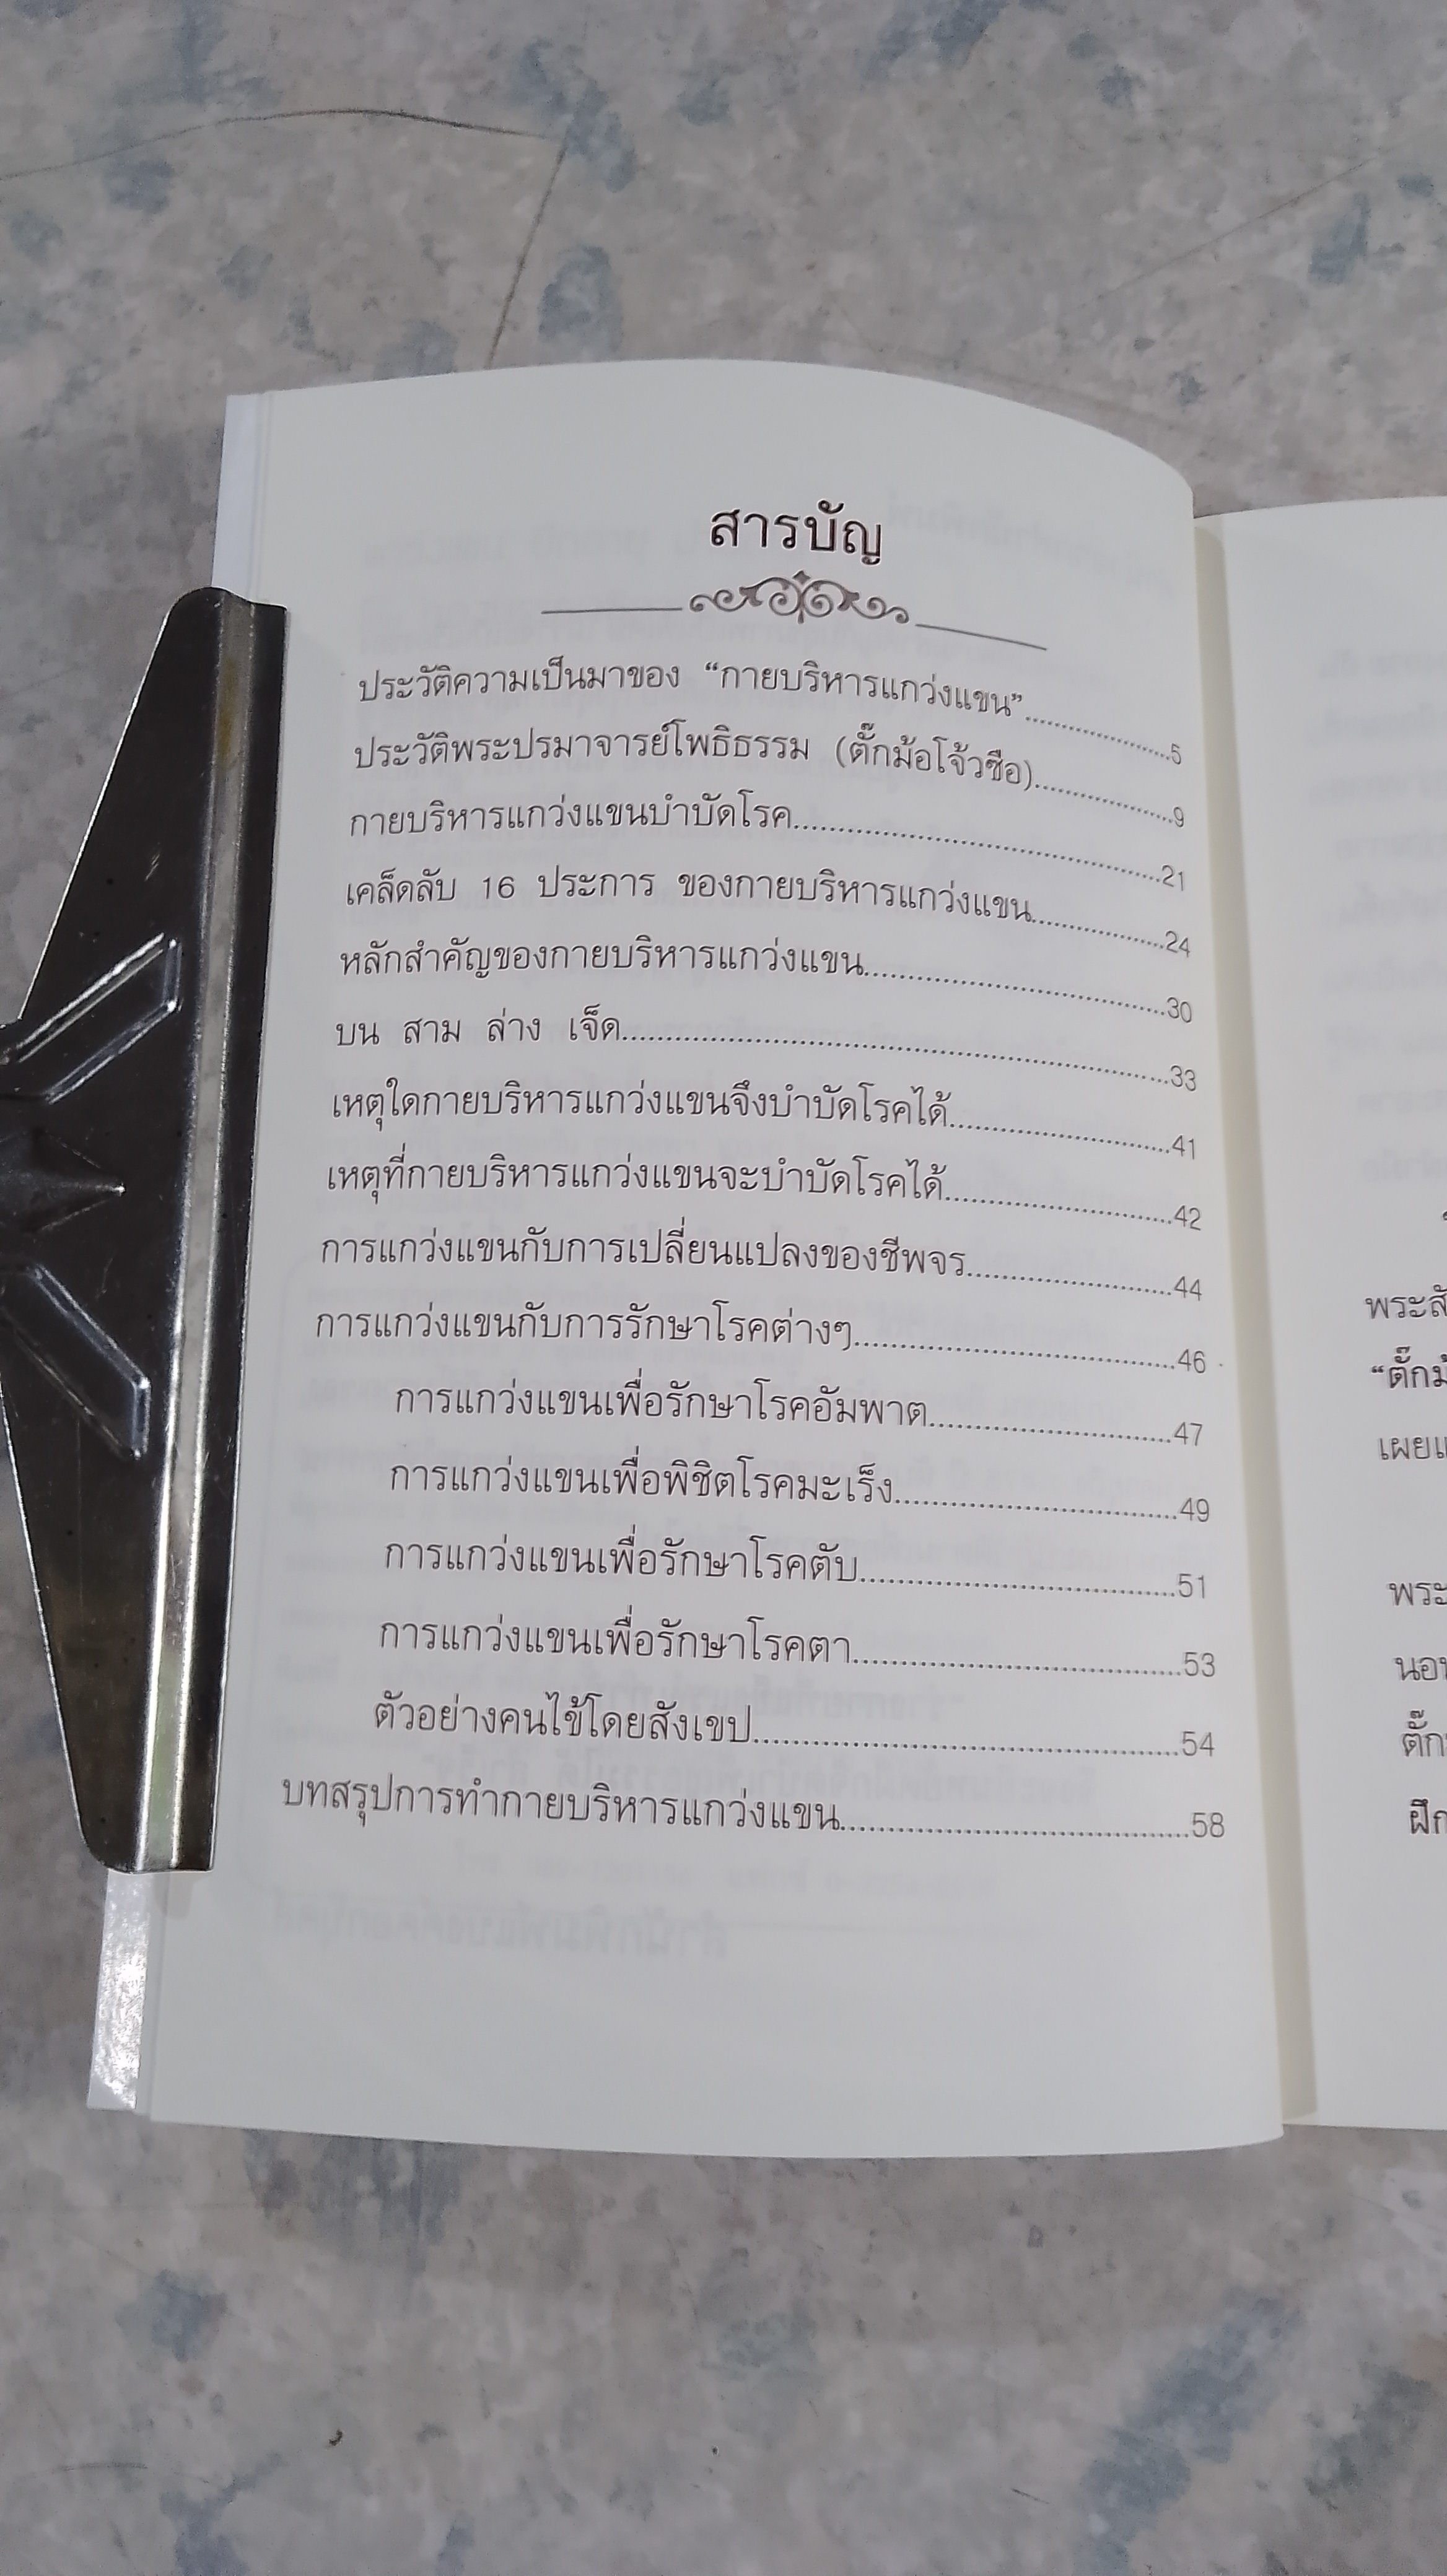 สารบัญ
ประวัติความเป็นมาของ “กายบริหารแกว่งแขน”..........5
ประวัติพระปรมาจารย์โพธิธรรม (ตั๊กม้อโจ้วซือ)..........9
กายบริหารแกว่งแขนบำบัดโรค..........21
เคล็ดลับ 16 ประการ ของกายบริหารแกว่งแขน..........24
หลักสำคัญของกายบริหารแกว่งแขน..........30
บน สาม ล่าง เจ็ด..........33
เหตุใดกายบริหารแกว่งแขนจึงบำบัดโรคได้..........41
เหตุที่กายบริหารแกว่งแขนจะบำบัดโรคได้..........42
การแกว่งแขนกับการเปลี่ยนแปลงของชีพจร..........44
การแกว่งแขนกับการรักษาโรคต่างๆ..........46
การแกว่งแขนเพื่อรักษาโรคอัมพาต..........47
การแกว่งแขนเพื่อพิชิตโรคมะเร็ง..........49
การแกว่งแขนเพื่อรักษาโรคตับ..........51
การแกว่งแขนเพื่อรักษาโรคตา..........53
ตัวอย่างคนไข้โดยสังเขป..........54
บทสรุปการทำกายบริหารแกว่งแขน..........58
พระ